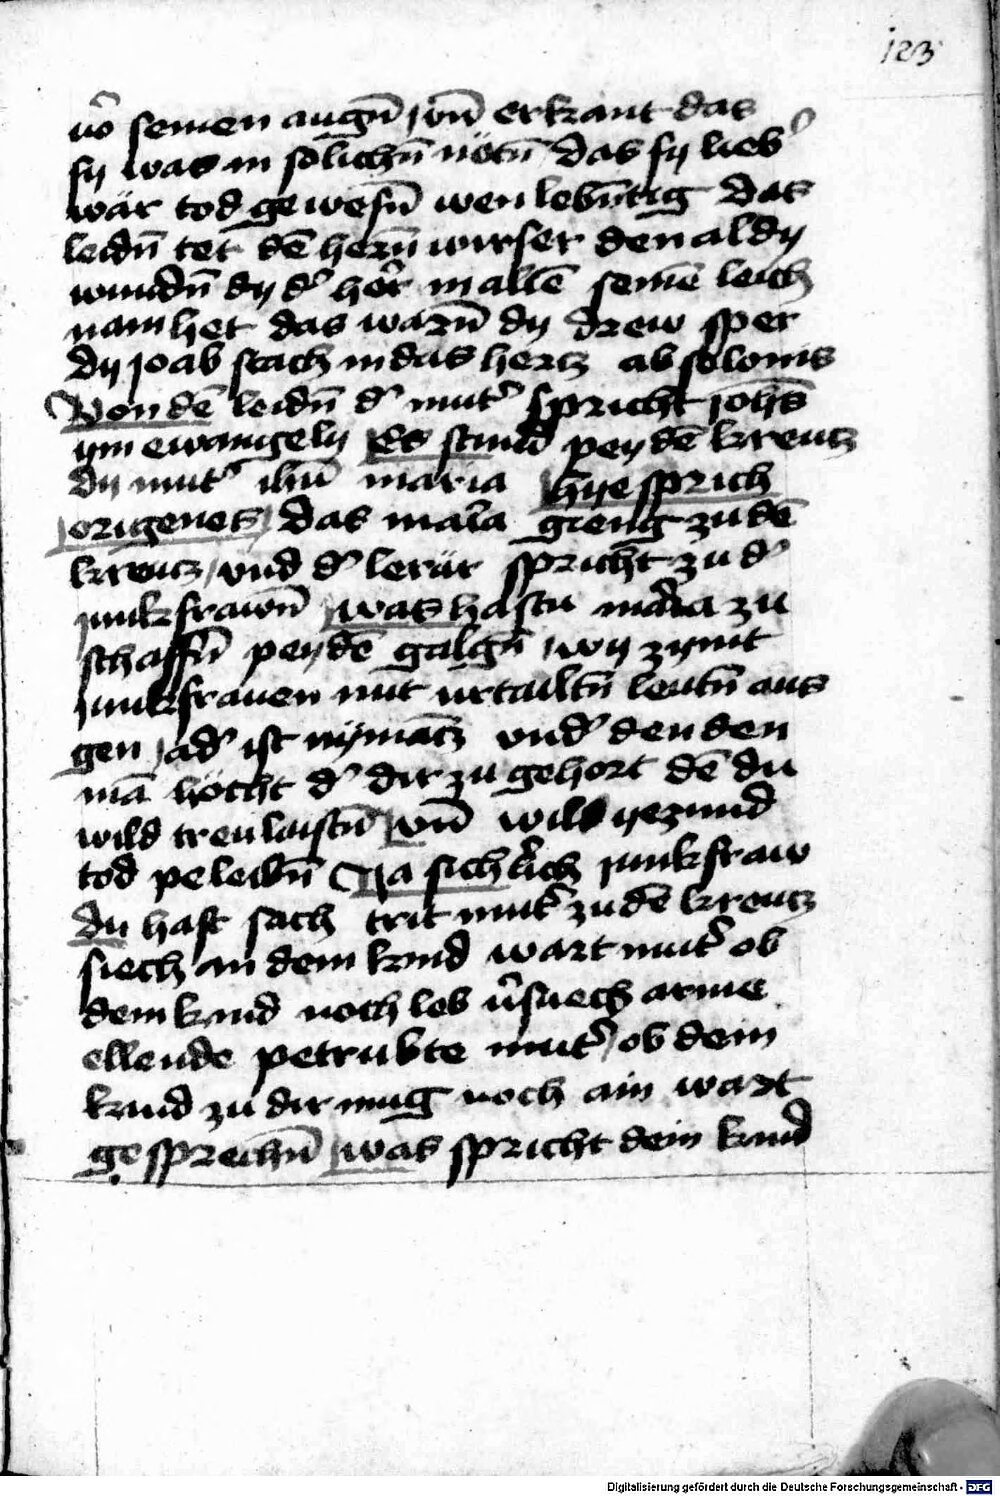 123
vō seinen augn̄ / vn̄ erkant das
sy was in sölichn̄ nötn̄ das sy lieb'
wär tod gewesn̄ wen lebn̄tig das
leidn̄ tet dē hern̄ wirser den al dy
wundn̄ dy d' her in allē seinē leich
nam het das warn̄ dy drew sper
dy joab stach in das hertz absolonis
Von dē leidn̄ d' mut' spricht johs̄
ym ewangely Es stund pey dē kreutz
dy mut' ihū maria hye sprich
origenes das maīa gieng zu dē
kreutz / vnd d' lerär spricht zu d'
junkfrawn̄ was hastu maria zu
schaffn̄ pey dē galgn̄ / wy zymt
junkfrauen mit urtailtn̄ leutn̄ aus
gen / ad' ist nymātz vnd' den den
mā höcht d' dir zu gehort dē du
wild treu laistn̄ vn̄ wild yezund
tod peleibn̄ Ja sich'lich junkfraw
du hast sach trit mut' zu dē kreutz
siech an dein kind wart mut' ob
dein kind noch leb v'suech arme
ellende petrubte mut' / ob dein
kind zu dir mug noch ain wart
gesprechn̄ was spricht dein kind
Digitalisierung gefördert durch die Deutsche Forschungsgemeinschaft - DFG